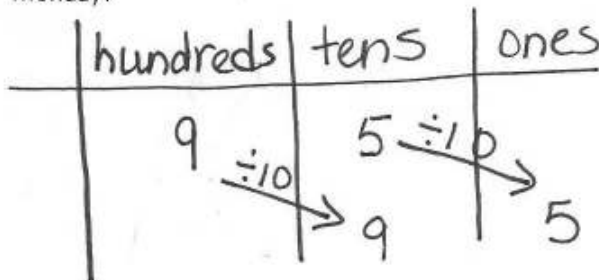 hundreds tens ones
9 5 ÷10
÷10
9 5